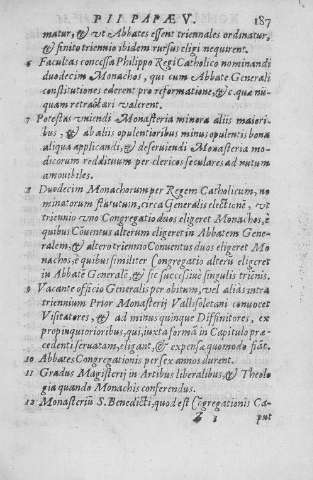 PII PAPÆ V. 187
matur, & vt Abbates essent triennales ordinatur,
& finito triennio ibidem rursus eligi nequirent.
6 Facultas concessa Philippo Regi Catholico nominandi
duodecim Monachos, qui cum Abbate Generali
constitutiones ederent pro reformatione, & c. quæ nun
quam retractari valerent.
7 Potestas vniendi Monasteria minora alijs maiori
bus, & ab alijs opulentioribus minus opulentis bona
aliqua applicandi, & deseruiendi Monasteria mo
dicorum reddituum per clericos seculares ad nutum
amouibiles.
8 Duodecim Monachorum per Regem Catholicum, no
minatorum statutum, circa Generalis electionē, vt
triennio vno Congregatio duos eligeret Monachos, è
quibus Cōuentus alterum eligeret in Abbatem Gene-
ralem, & altero trienno Conuentus duos eligeret Mo
nachos, è quibus similiter Cōgregatio alterū eligeret
in Abbatē Generalē, & sic successiuè singulis trienis.
9 Vacante officio Generalis per obitum, vel aliàs intra
triennium Prior Monasterij Vallisoletani conuocet
Visitatores, & ad minus quinque Diffinitores, ex
propinquioribus, qui, iuxta formā in Capitulo præ-
cedenti seruatam, eligant, & expensæ quomodo fiāt.
10 Abbates Congregationis per sex annos durent.
11 Gradus Magisterij in Artibus liberalibus, & Theolo
gia quando Monachis conferendus.
12 Monasteriū S. Benedicti, quod est Cōgregationis Ca-
Z 3 put